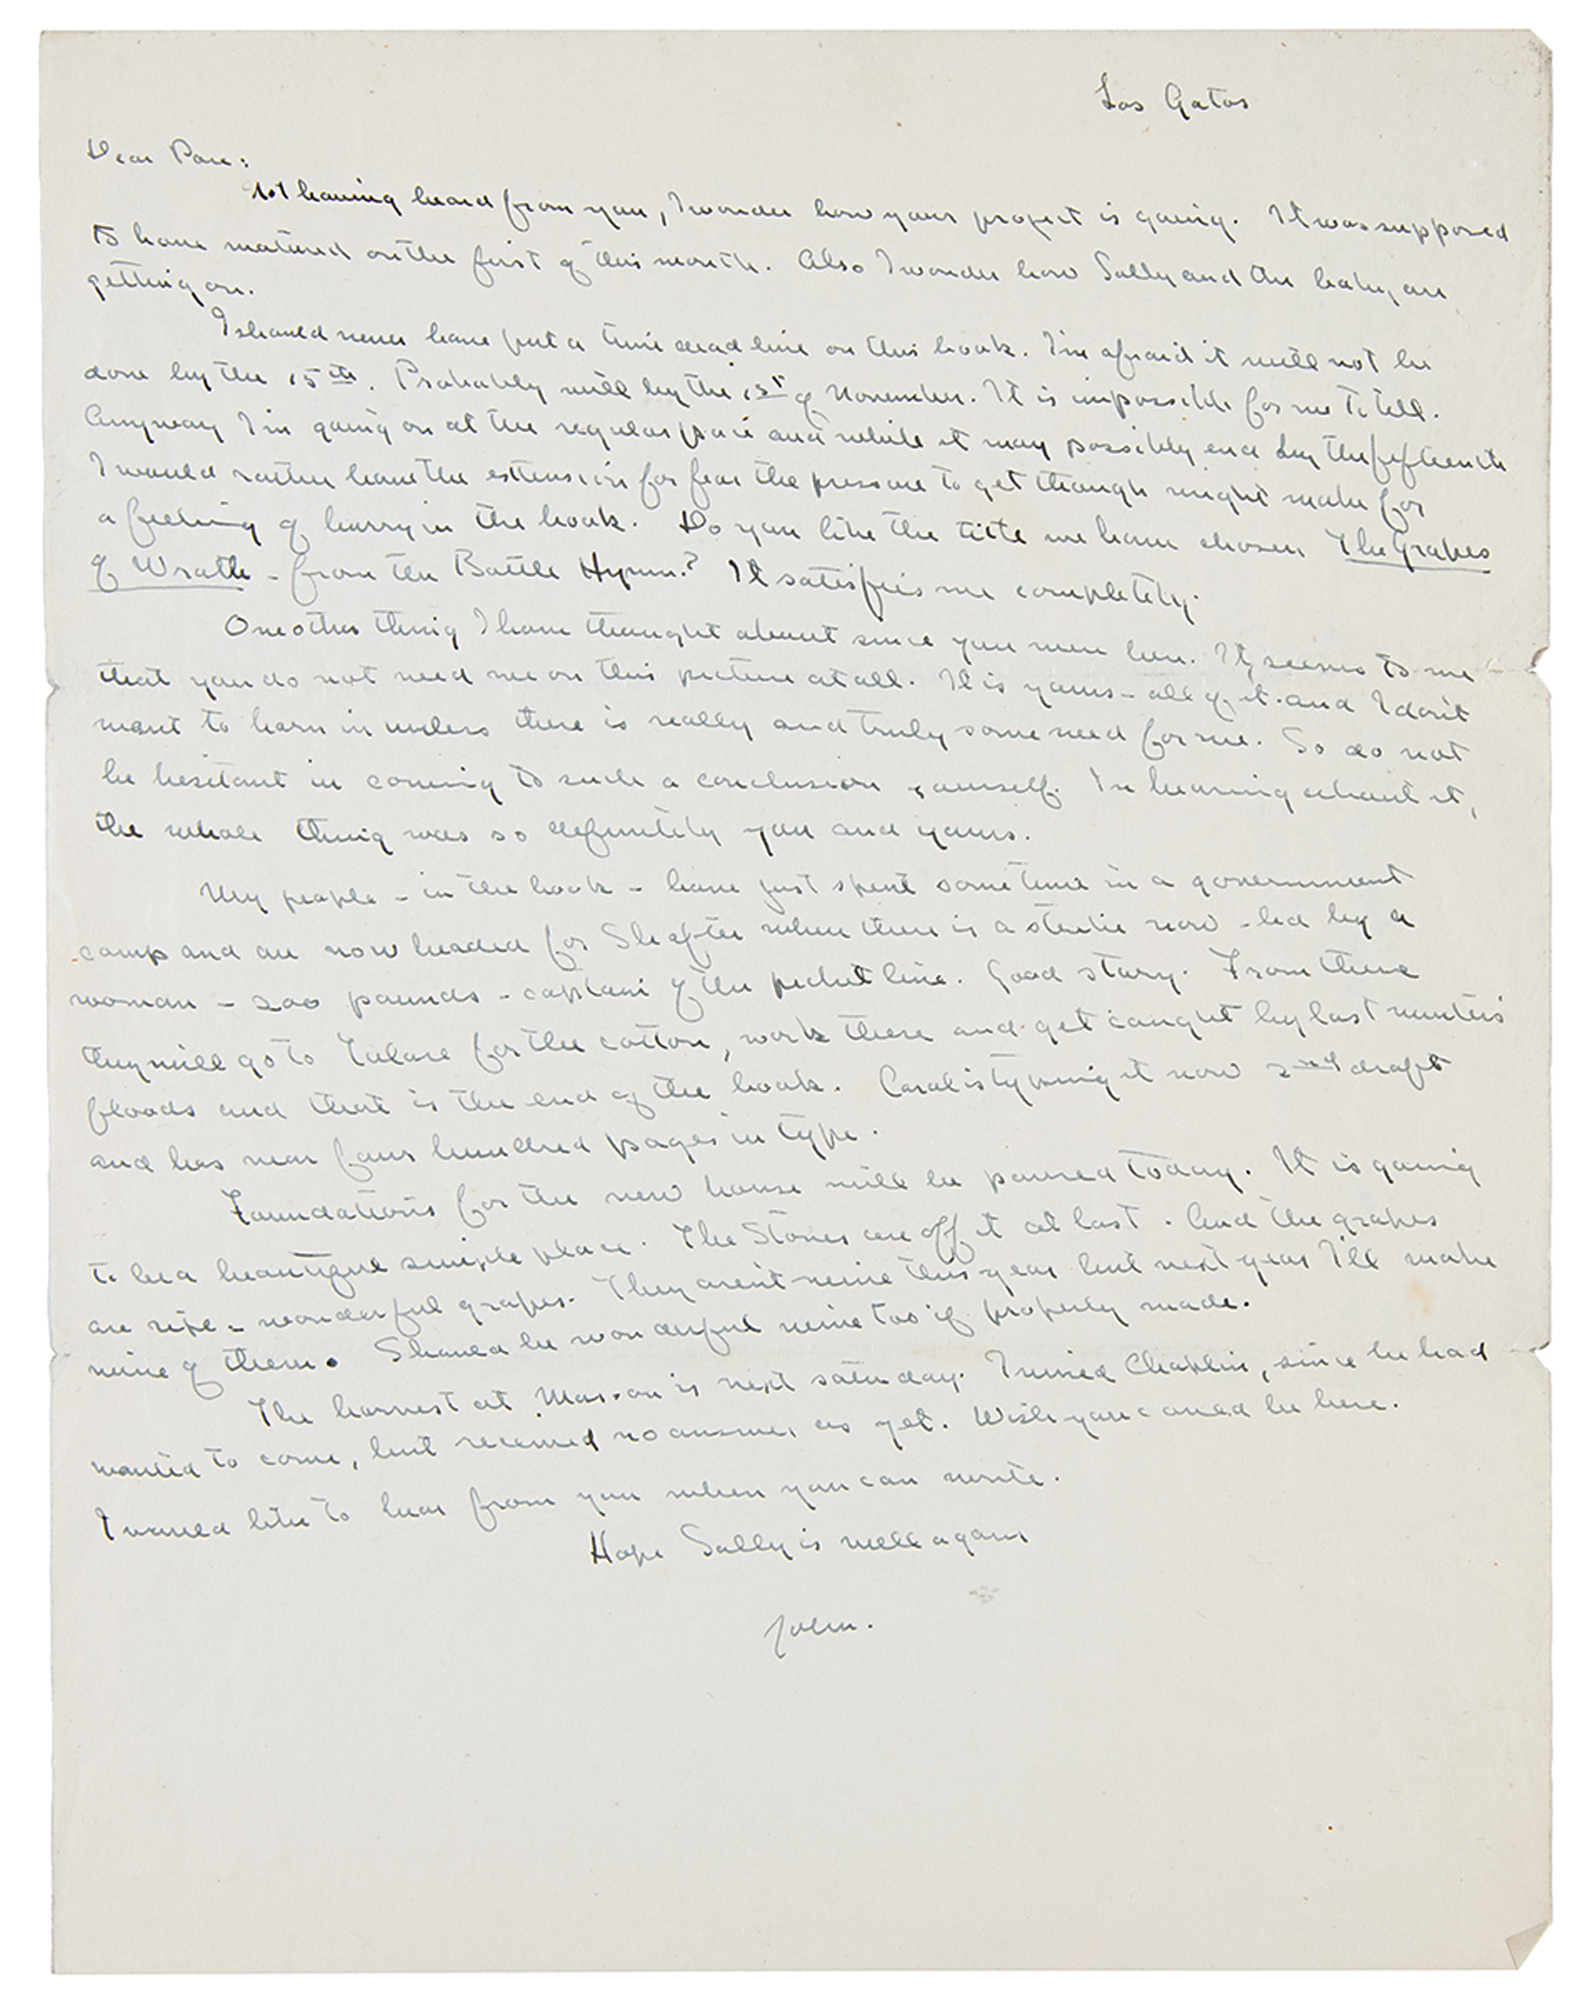 Los Gatos
Dear Pare:
Not having heard from you, I wonder how your project is going. It was supposed
to have matured on the first of this month. Also I wonder how Sally and the baby are
getting on.
I should never have put a time dead line on this book. I'm afraid it will not be
done by the 15th. Probably will by the 1st of November. It is impossible for me to tell.
Anyway I'm going on at the regular pace and while it may possibly end by the fifteenth
I would rather have the extension for fear the pressure to get through might make for
a feeling of hurry in the book. Do you like the title we have chosen The Grapes
of Wrath - from the Battle Hymn? It satisfies me completely.
One other thing I have thought about since you were here. It seems to me
that you do not need me on this picture at all. It is yours - all of it - and I don't
want to horn in unless there is really and truly some need for me. So do not
be hesitant in coming to such a conclusion yourself. In hearing about it,
the whole thing was so definitely you and yours.
My people - in the book - have just spent sometime in a government
camp and are now headed for Shafter where there is a strike now - led by a
woman - 200 pounds - captain of the picket line. Good story. From there
they will go to Tulare for the cotton, work there and get caught by last winter's
floods and that is the end of the book. Carol is typing it now 2nd draft
and has near four hundred pages in type.
Foundations for the new house will be poured today. It is going
to be a beautiful simple place. The Stones are off it at last. And the grapes
are ripe - wonderful grapes. They aren't mine this year but next year I'll make
wine of them. Should be wonderful wine too if properly made.
The harvest at Masson is next saturday. I wired Chaplin, since he had
wanted to come, but received no answer as yet. Wish you could be here.
I would like to hear from you when you can write.
Hope Sally is well again
John.